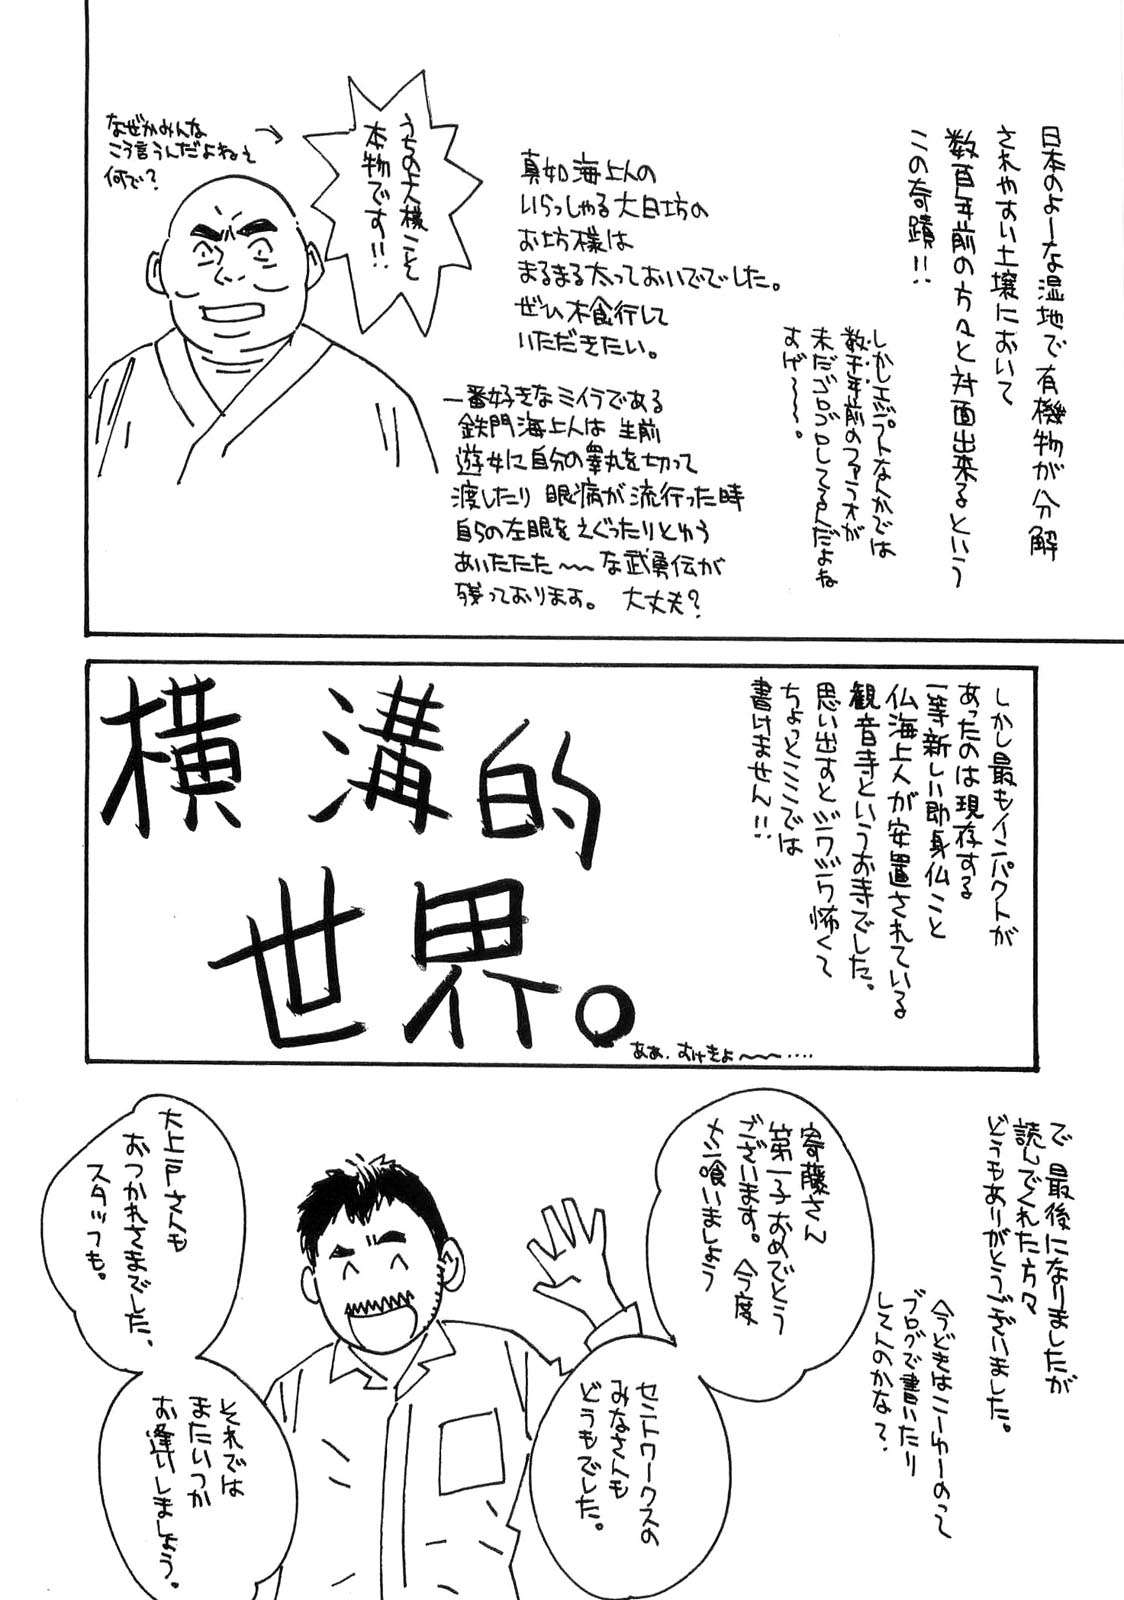 日本のよーな湿地で有機物が分解
されやすい土壌において
数百年前の方々と対面出来るという
この奇蹟!!
しかしエジプトなんかでは
数千年前のファラオが
未だゴロゴロしてるんだよね
すげ〜〜〜。
真如海上人の
いらっしゃる大日坊の
お坊様は
まるまる太っておいででした。
ぜひ木食行して
いただきたい。
うちの大様こそ
本物です!!
なぜかみんな
こう言うんだよねえ
何で?
一番好きなミイラである
鉄門海上人は 生前
遊女に自分の睾丸を切って
渡したり 眼病が流行った時
自らの左眼をえぐったりとゆう
あいたたた〜〜な武勇伝が
残っております。 大丈夫?
しかし最もインパクトが
あったのは現存する
一等新しい即身仏こと
仏海上人が安置されている
観音寺というお寺でした。
思い出すとジワジワ怖くて
ちょっとここでは
書けません!!
横溝的
世界。
ああ、おけきょ〜〜‥‥
で 最後になりましたが
読んでくれた方々
どうもありがとうございました。
今どきはこーゆーのって
ブログで書いたり
してんのかな?
寄藤さん
第一子おめでとう
ございます。今度
メシ喰いましょう
セントワークスの
みなさんも
どうもでした。
大上戸さんも
おつかれさまでした、
スタッフも。
それでは
またいつか
お逢いしましょう。